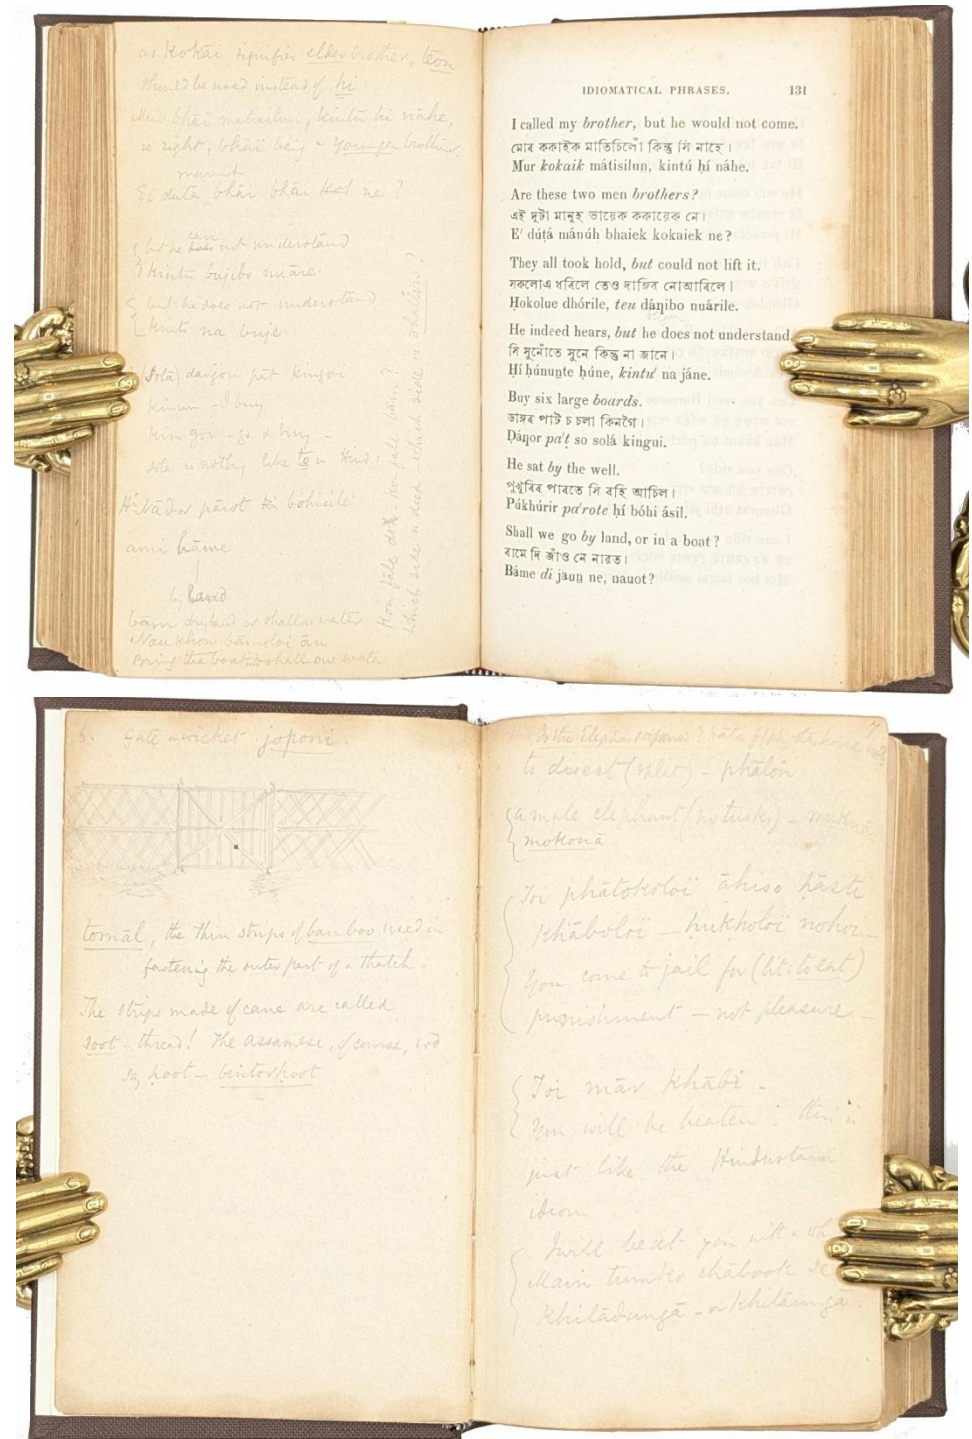 as Kokāi signifies elder brother, teon
should be used instead of hi
Mur bhāi mātisilun, kintu hi nāhe,
is right, bhāi being a younger brother
manuh
Ei dutā bhāi bhāi ne ?
can
but he does not understand
Kintu bujibo nuāre.
but he does not understand
Kintu na buje.
(Solā) dangor pāt kingoi
kinun - I buy
kin goi - go & buy -
solā is nothing like to in Hind:
Hi Nādor pārot hi bohisile
ami bāme
by land
bām dry land or shallow water
Nau khon bāmoloi ān
Bring the boat to shallow water
Kon fāle do - kon fāle tām ?
Which side is deep which side is shallow ?
IDIOMATICAL PHRASES. 131
I called my brother, but he would not come.
মোৰ ককাইক মাতিচিলোঁ কিন্তু সি নাহে।
Mur kokaik mátisiluṉ, kintú ḥí náhe.
Are these two men brothers?
এই দুটা মানুহ ভায়েক ককায়েক নে।
E' dúṭá mánúh bhaiek kokaiek ne?
They all took hold, but could not lift it.
সকলোএ ধৰিলে তেও দাঙ্গিব নোআৰিলে।
Ḥokolue dhórile, teu dáṉibo nuárile.
He indeed hears, but he does not understand.
সি সুনোঁতে সুনে কিন্তু না জানে।
Ḥí ḥúnuṉte ḥúne, kintú na jáne.
Buy six large boards.
ডাঙ্গৰ পাট চ চলা কিনগৈ।
Ḍáṉor pa't so solá kingui.
He sat by the well.
পুখুৰিৰ পাৰতে সি বহি আচিল।
Púkhúrir pa'rote ḥí bóhi ásil.
Shall we go by land, or in a boat?
বামে দি জাঁও নে নাৱত।
Báme di jáuṉ ne, nauot?
6. Gate or wicket joponi.
tomāl, the thin strips of bamboo used in
fastening the outer part of a thatch.
The strips made of cane are called
soot - thread! The Assamese, of course, wd
say hoot - beitorhoot
to disect (split) - phālon
a male elephant (no tusks) - mukna
mokonā
Toi phātokoloi āhiso hāsti
khāboloi - hukholoi nohoi -
You come to jail for (lit: to eat)
punishment - not pleasure -
Toi mār khābi -
You will be beaten ; this is
just like the Hindustani
idiom
I will beat you with a
Main tumko chābook se
khilādungā - or khilāungā.